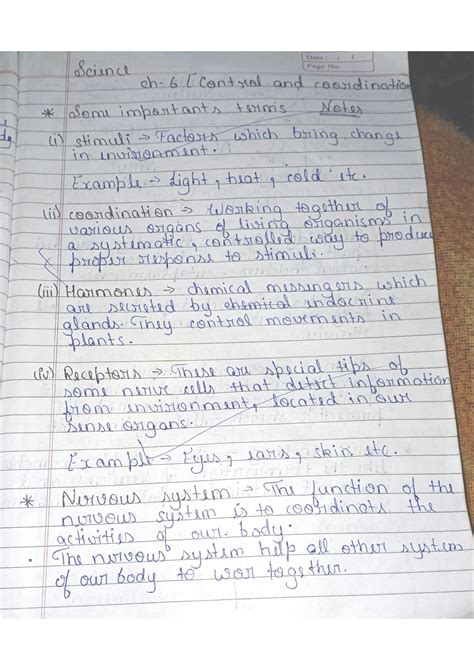 Date : / /
Page No.
Science
ch-6 [Control and coordination
* Some importants terms Notes
(i) stimuli → Factors which bring change
in environment.
Example → Light, heat, cold etc.
(ii) coordination → Working together of
various organs of living organisms in
a systematic, controlled way to produce
proper response to stimuli.
(iii) Harmones → chemical messengers which
are secreted by chemical endocrine
glands. They control movements in
plants.
(iv) Receptors → These are special tips of
some nerve cells that detect information
from environment, located in our
sense organs.
Example → Eyes, ears, skin etc.
* Nervous system → The function of the
nervous system is to coordinate the
activities of our body.
. The nervous system help all other system
of our body to wor together.